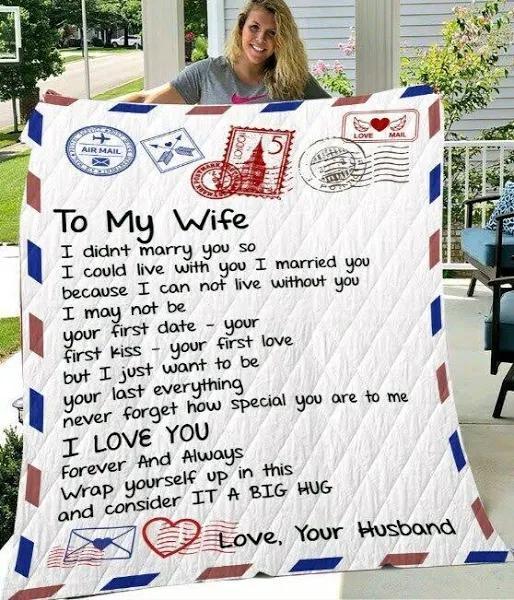 AIR MAIL
LONDON
5
LOVE MAIL
To My Wife
I didnt marry you so
I could live with you I married you
because I can not live without you
I may not be
your first date - your
first kiss - your first love
but I just want to be
your last everything
never forget how special you are to me
I LOVE YOU
Forever And Always
Wrap yourself up in this
and consider IT A BIG HUG
Love, Your Husband